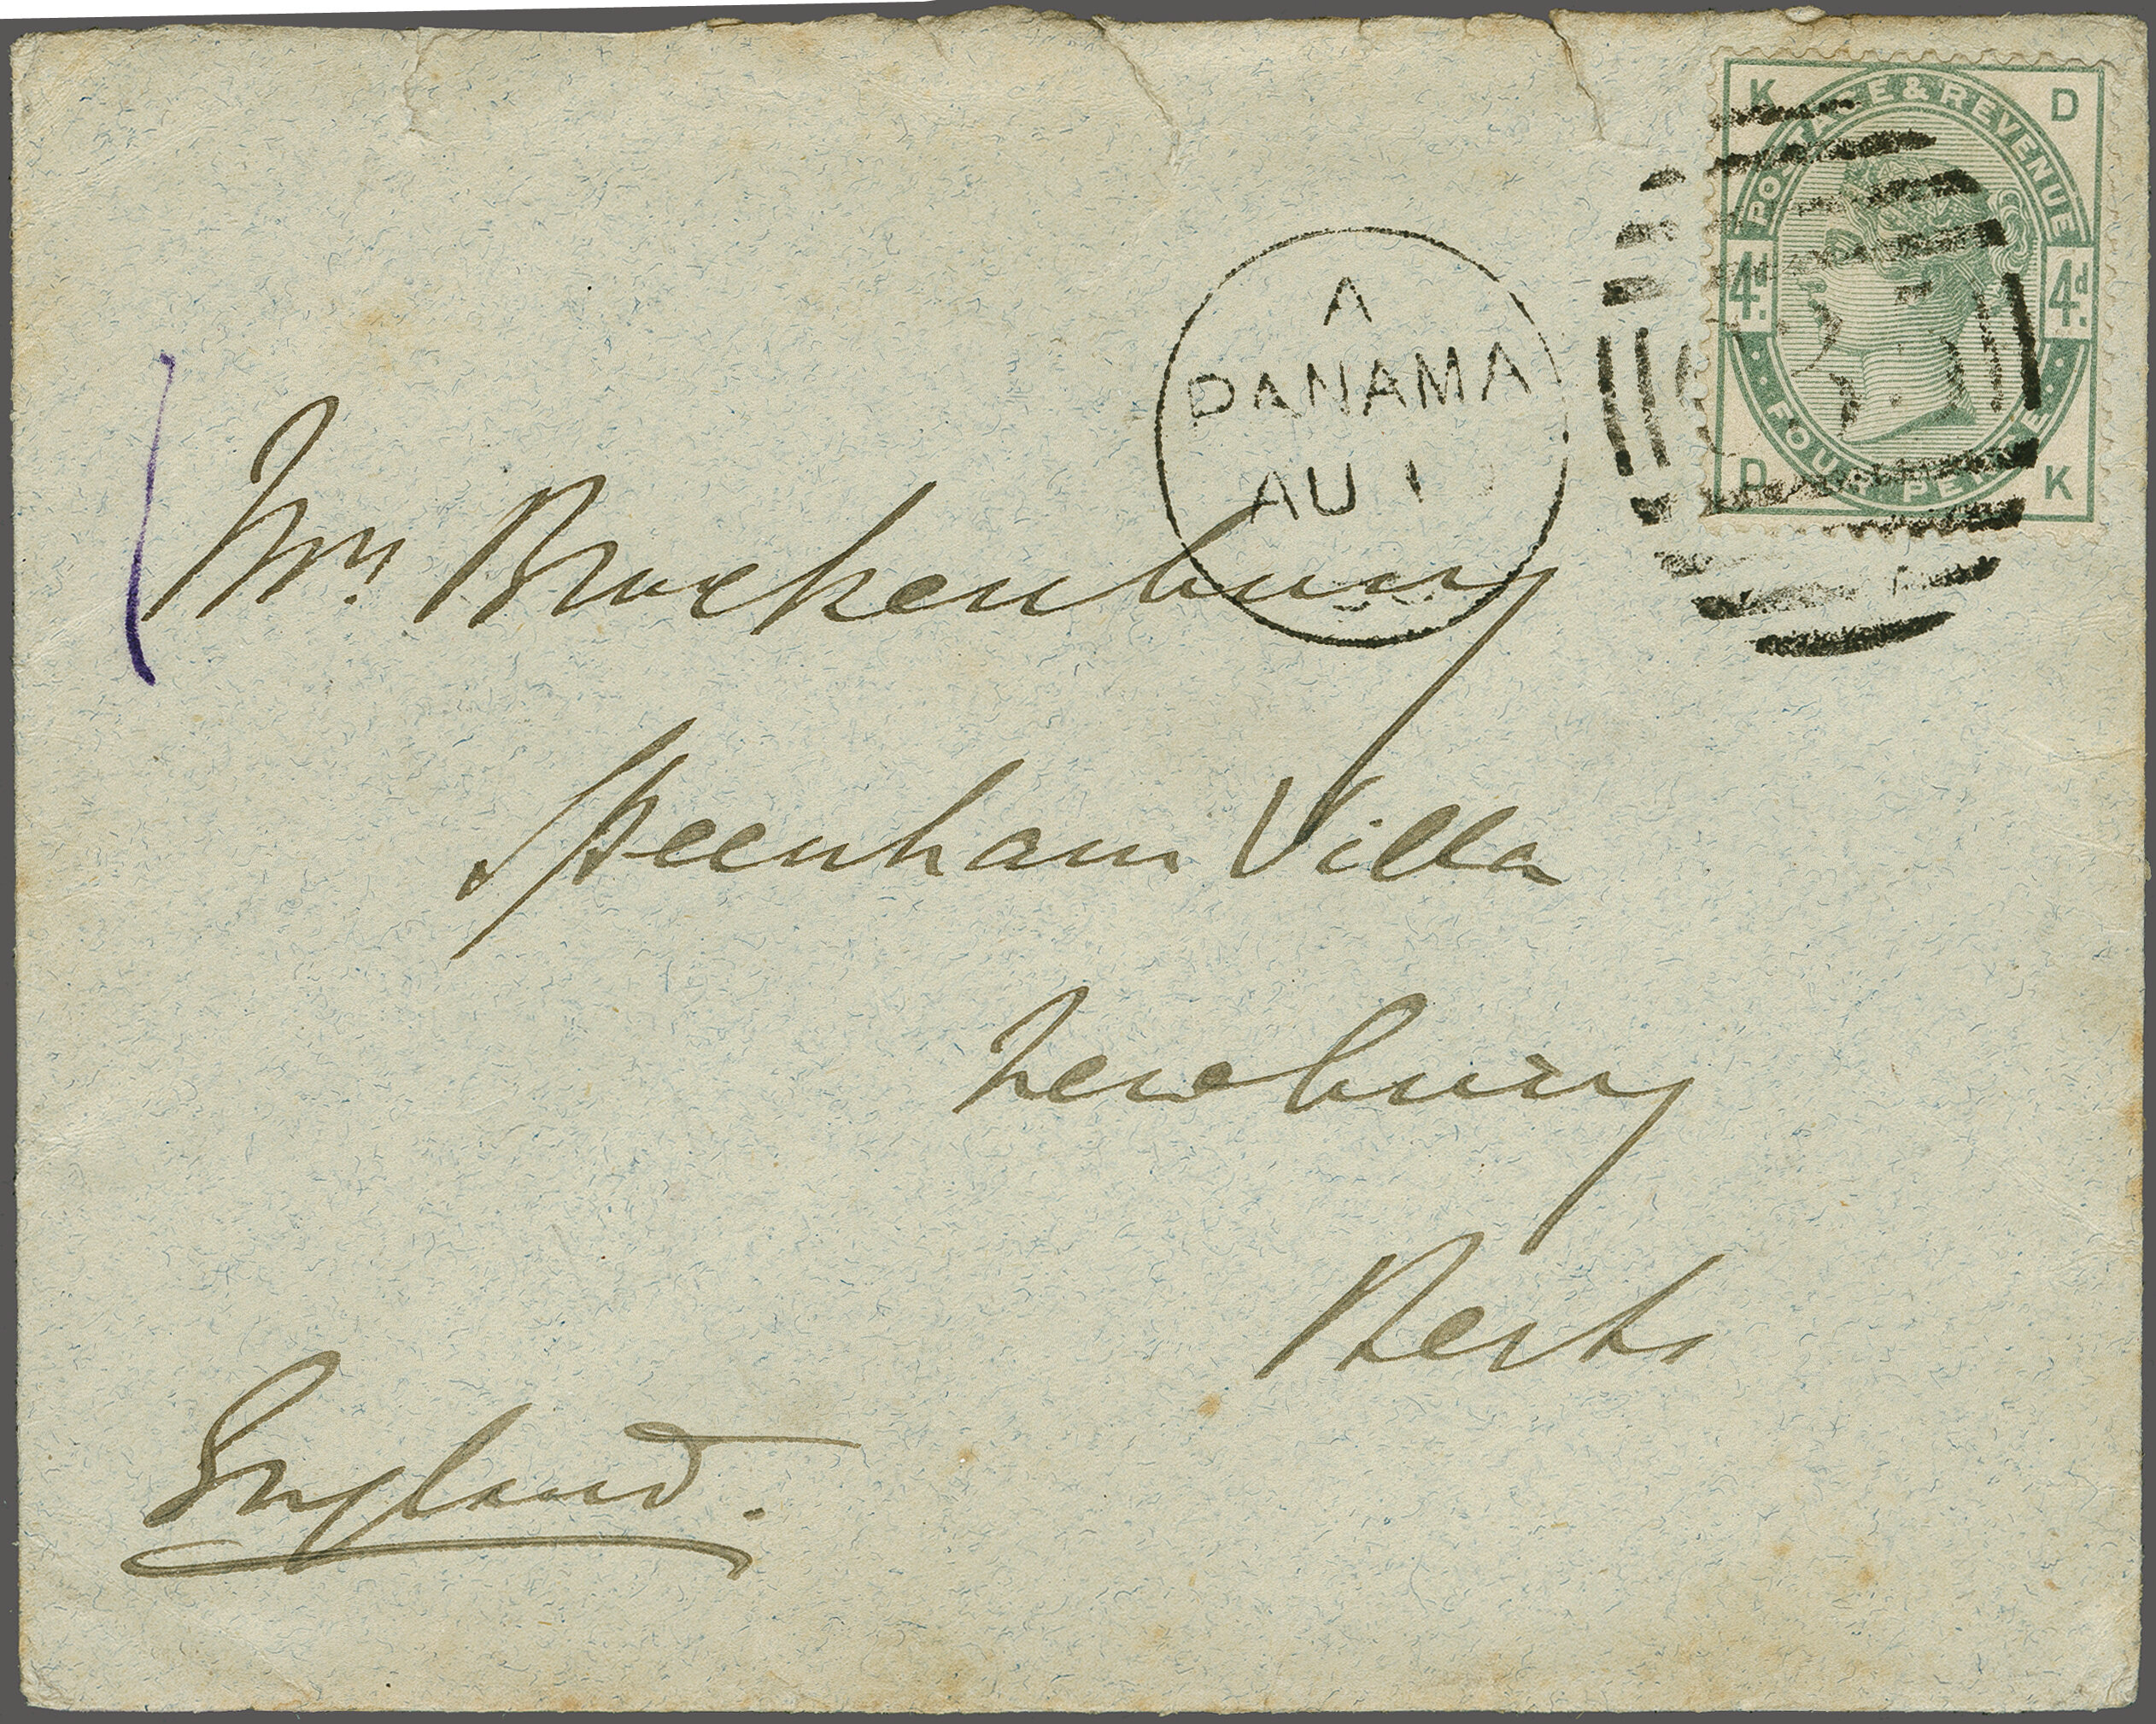 K D
POSTAGE & REVENUE
4d. 4d.
D K
FOUR PENCE
A
PANAMA
AU 1
Mrs Brackenbury
Speenham Villa
Newbury
Berks
England.